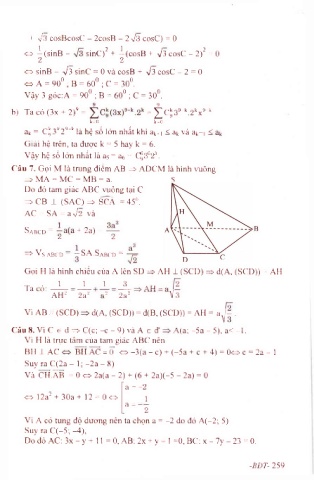 + √3 cosBcosC − 2cosB − 2√3 cosC) = 0
⇔ 1/2 (sinB − √3 sinC)² + 1/2 (cosB + √3 cosC − 2)² = 0
⇔ sinB − √3 sinC = 0 và cosB + √3 cosC − 2 = 0
⇔ A = 90⁰, B = 60⁰; C = 30⁰.
Vậy 3 góc: A = 90⁰; B = 60⁰; C = 30⁰.
b) Ta có (3x + 2)
là hệ số lớn nhất khi
Giải hệ trên, ta được k = 5 hay k = 6.
Vậy hệ số lớn nhất là a₅ = a₆
Câu 7. Gọi M là trung điểm AB ⇒ ADCM là hình vuông
⇒ MA = MC = MB = a.
Do đó tam giác ABC vuông tại C
⇒ CB ⊥ (SAC) ⇒ SCA = 45°.
AC = SA = a√2 và
S_ABCD = 1/2 a(a + 2a) = 3a²/2
⇒ V_S.ABCD = 1/3 SA.S_ABCD = a³/√2
S
H
A
M
B
D
C
Gọi H là hình chiếu của A lên SD ⇒ AH ⊥ (SCD) ⇒ d(A, (SCD)) = AH
Ta có: 1/AH² = 1/2a² + 1/a² = 3/2a² ⇒ AH = a√(2/3)
Vì AB // (SCD) ⇒ d(A, (SCD)) = d(B, (SCD)) = AH = a√(2/3)
Câu 8. Vì C ∈ d ⇒ C(c; −c − 9) và A ∈ d' ⇒ A(a; −5a − 5), a < −1.
Vì H là trực tâm của tam giác ABC nên
BH ⊥ AC ⇔ BH.AC = 0 ⇔ −3(a − c) + (−5a + c + 4) = 0 ⇔ c = 2a − 1
Suy ra C(2a − 1; −2a − 8)
Và CH.AB = 0 ⇔ 2a(a − 2) + (6 + 2a)(−5 − 2a) = 0
⇔ 12a² + 30a + 12 = 0 ⇔ [a = −2; a = −1/2
Vì A có tung độ dương nên ta chọn a = −2 do đó A(−2; 5)
Suy ra C(−5; −4),
Do đó AC: 3x − y + 11 = 0, AB: 2x + y − 1 = 0, BC: x − 7y − 23 = 0.
-BDT- 259